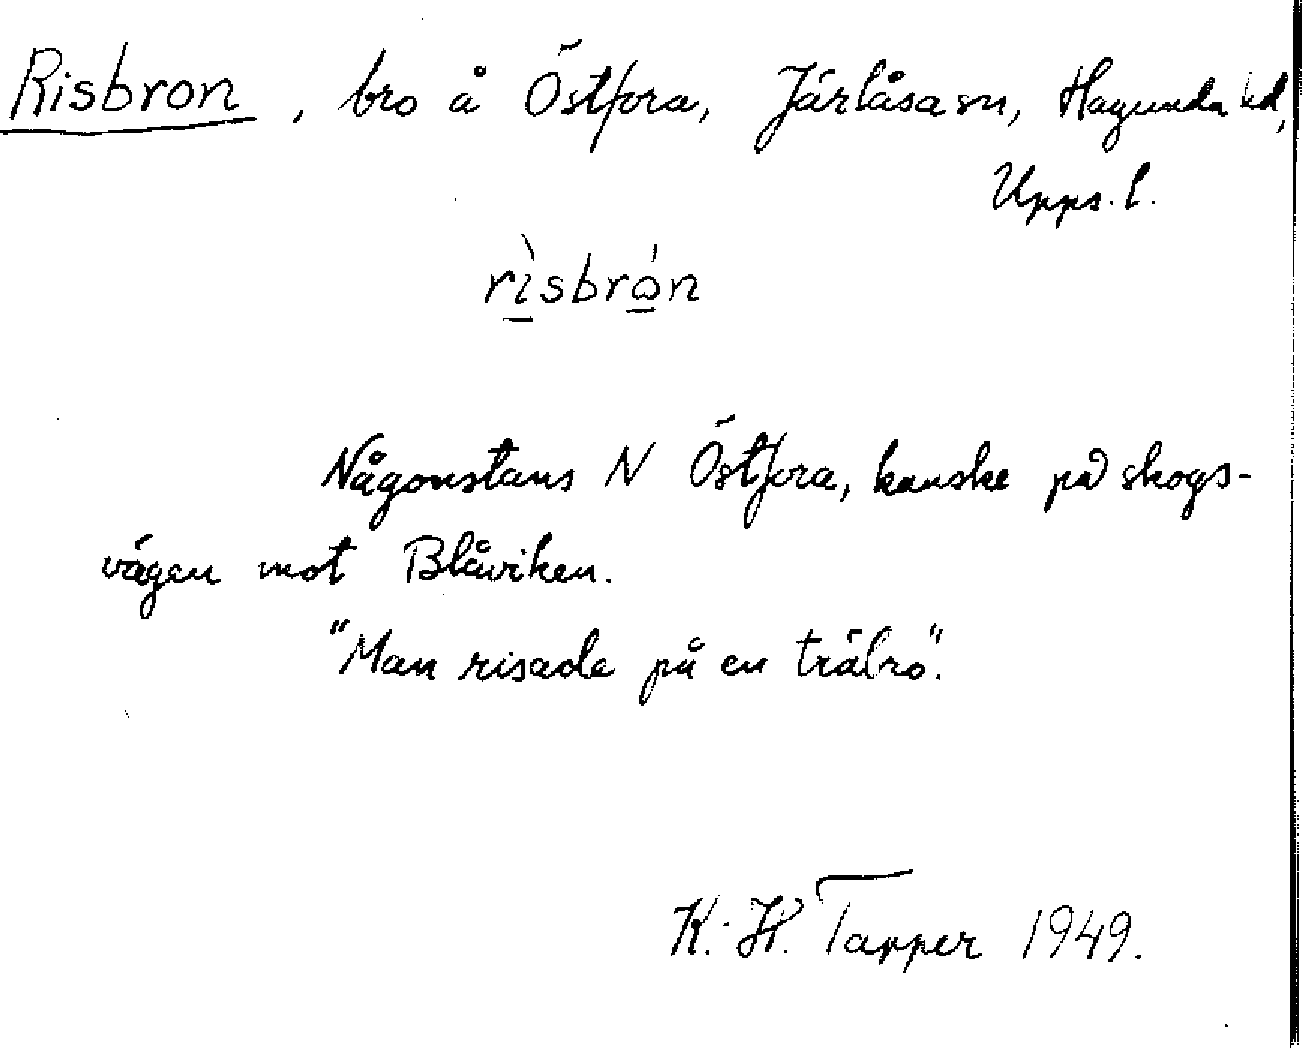 Risbron, bro å Östfora, Järlåsa sn, Hagunda hd,
Upps. l.
rìsbrón
Någonstans N Östfora, kanske på skogs-
vägen mot Blåviken.
"Man risade på en träbro".
K.-H. Tapper 1949.